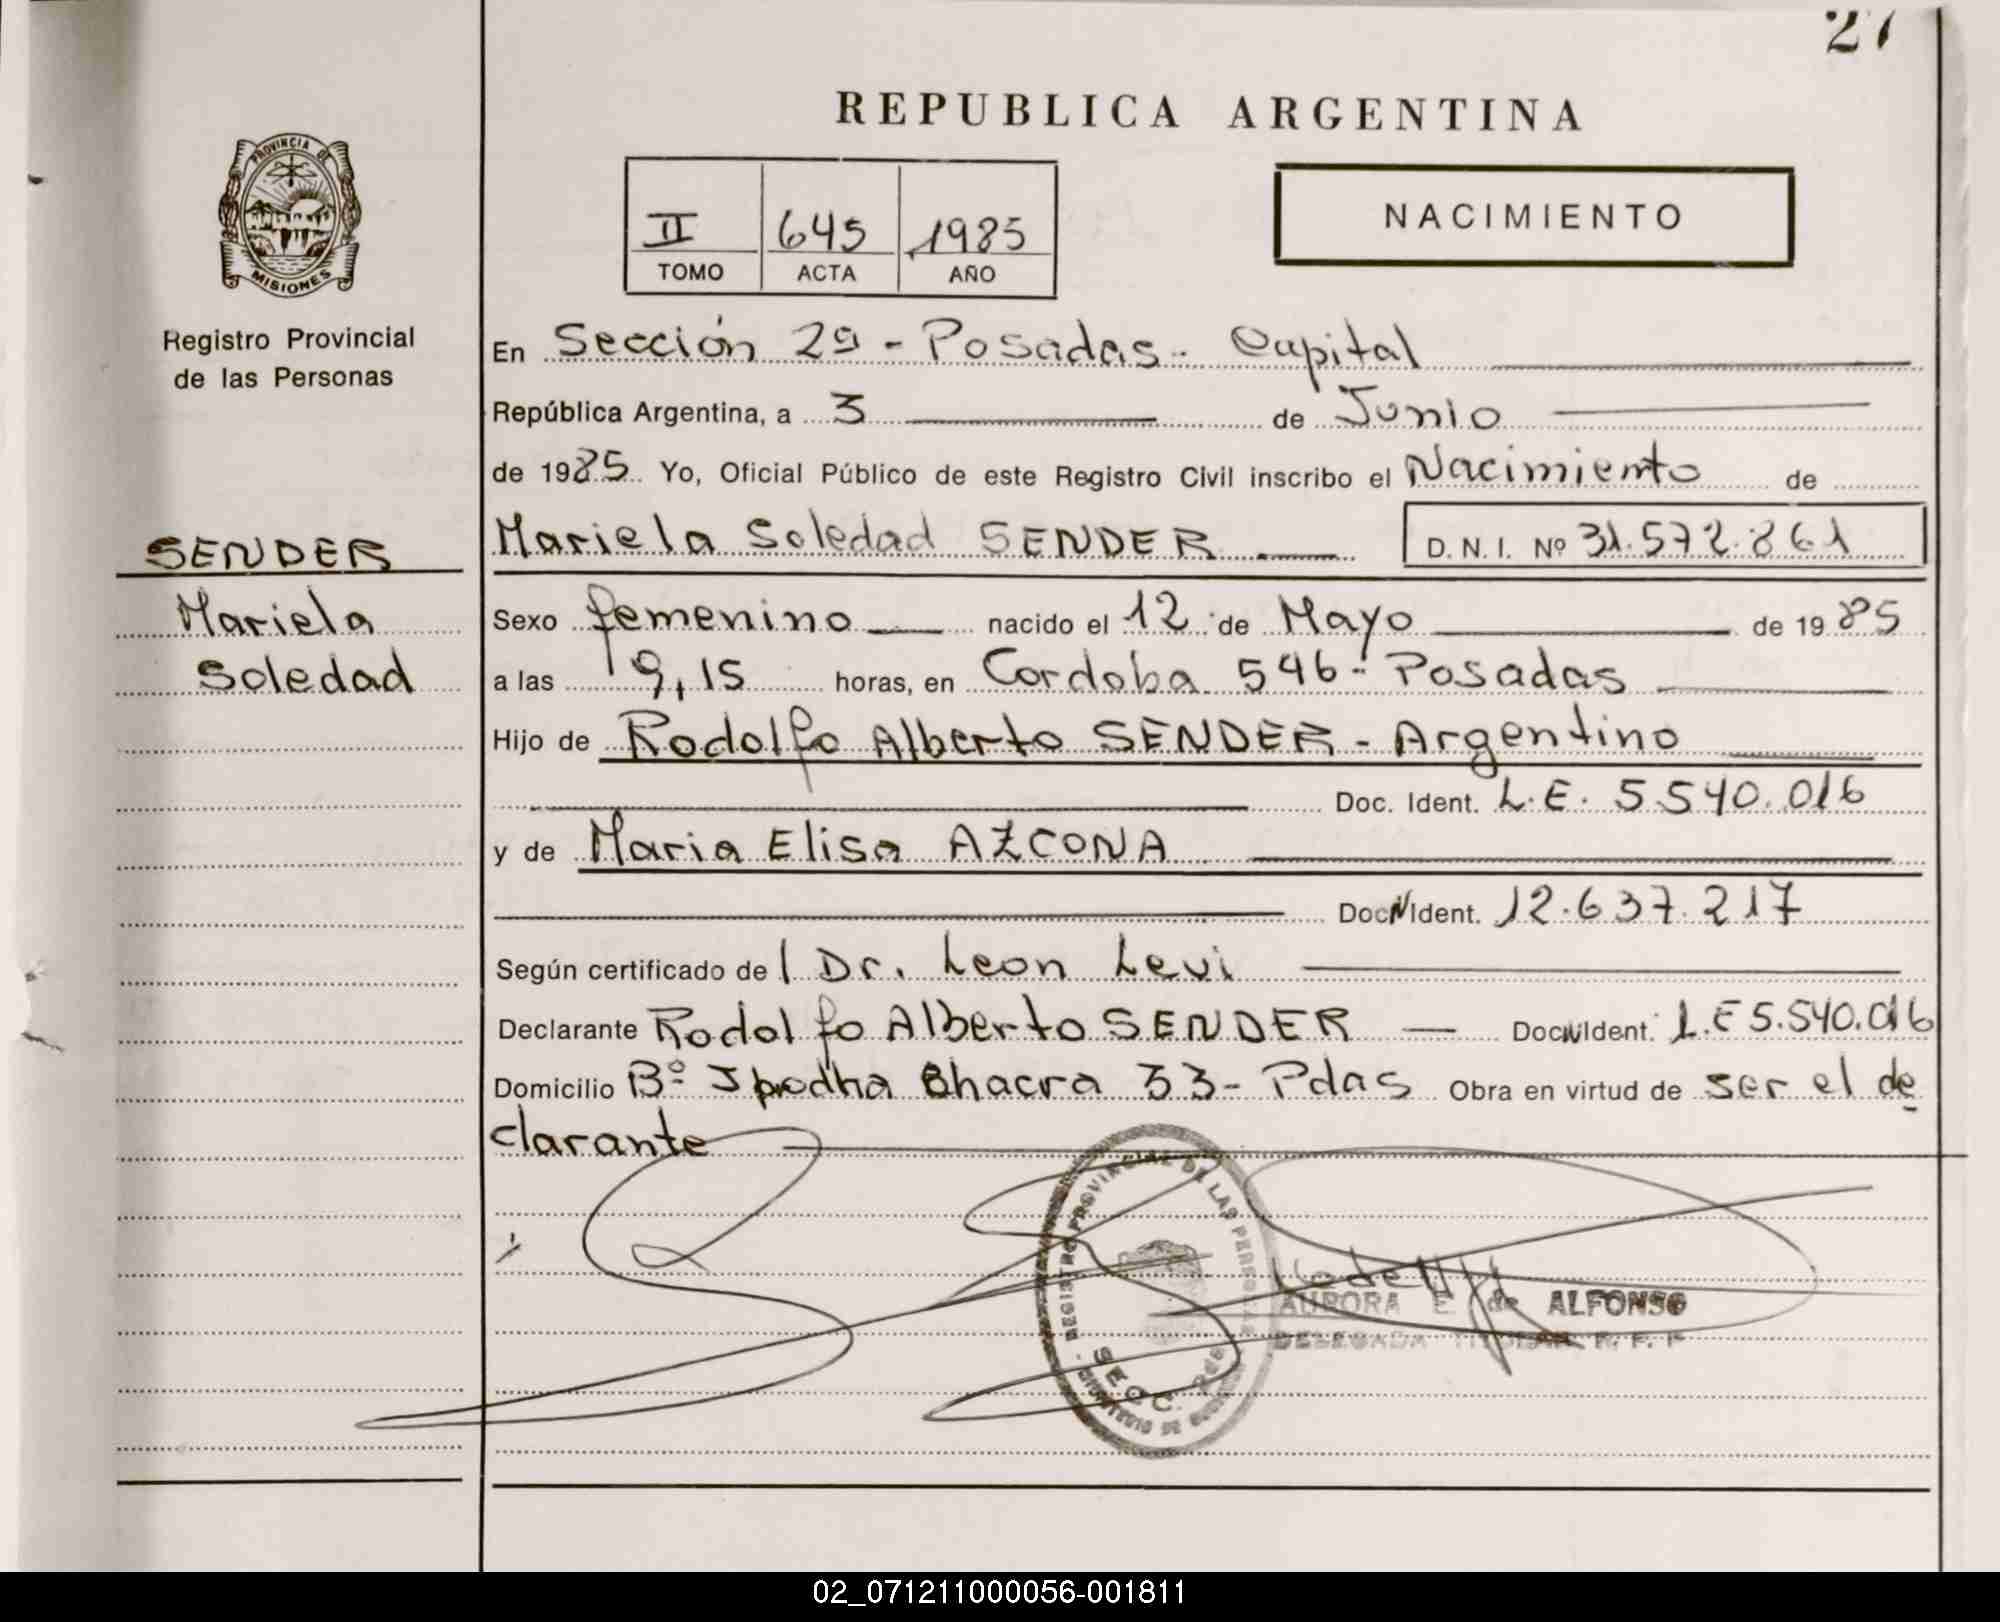 27
REPUBLICA ARGENTINA
PROVINCIA DE
MISIONES
Registro Provincial
de las Personas
II 645 1985
TOMO ACTA AÑO
NACIMIENTO
En Sección 2ª - Posadas - Capital
República Argentina, a 3 de Junio
de 1985 Yo, Oficial Público de este Registro Civil inscribo el Nacimiento de
SENDER
Mariela
Soledad
Mariela Soledad SENDER D.N.I. Nº 31.572.861
Sexo femenino nacido el 12 de Mayo de 1985
a las 19,15 horas, en Cordoba 546 - Posadas
Hijo de Rodolfo Alberto SENDER - Argentino
Doc. Ident. L.E. 5.540.016
y de Maria Elisa AZCONA
Doc. N Ident. 12.637.217
Según certificado del Dr. Leon Levi
Declarante Rodolfo Alberto SENDER Doc. N Ident. L.E 5.540.016
Domicilio Bº Chacra 33 - Pdas Obra en virtud de ser el de
clarante
REGISTRO PROVINCIAL DE LAS PERSONAS
SECC.
AURORA E de ALFONSO
DELEGADA TITULAR R. P. P
02_071211000056-001811